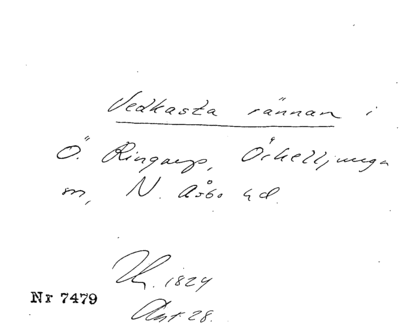 Vedkasta rännan i
Ö. Ringarp, Örkelljunga
sn, N. Åsbo hd.
1824
Nr 7479
28.